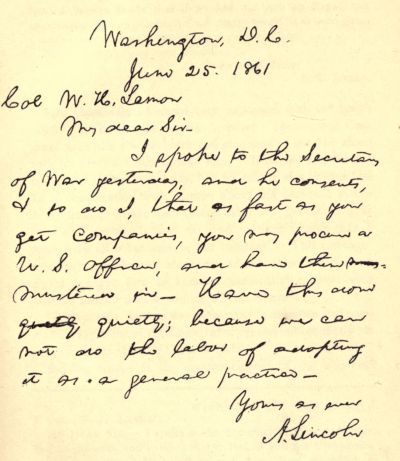 Washington, D.C.
June 25. 1861
Col W. H. Lamon
My dear Sir-
I spoke to the Secretary
of War yesterday, and he consents,
& so do I, that as fast as you
get companies, you may procure a
U. S. officer, and have them
mustered in— Have this done
quietly quietly; because we can
not do the labor of adopting
it as a general practice—
Yours as ever
A. Lincoln